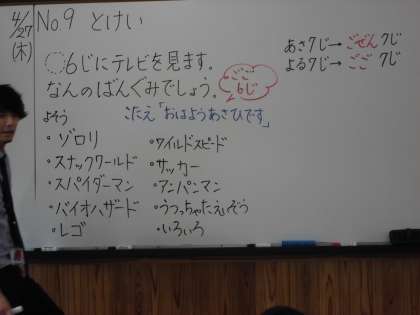 4/27(木)
No.9 とけい
6じにテレビを見ます。
なんのばんぐみでしょう。
ごご
6じ
あさ7じ→ごぜん7じ
よる7じ→ごご7じ
よそう
こたえ「おはようあさひです」
・ゾロリ
・スナックワールド
・スパイダーマン
・バイオハザード
・レゴ
・ワイルドスピード
・サッカー
・アンパンマン
・うつっちゃたえいぞう
・いろいろ